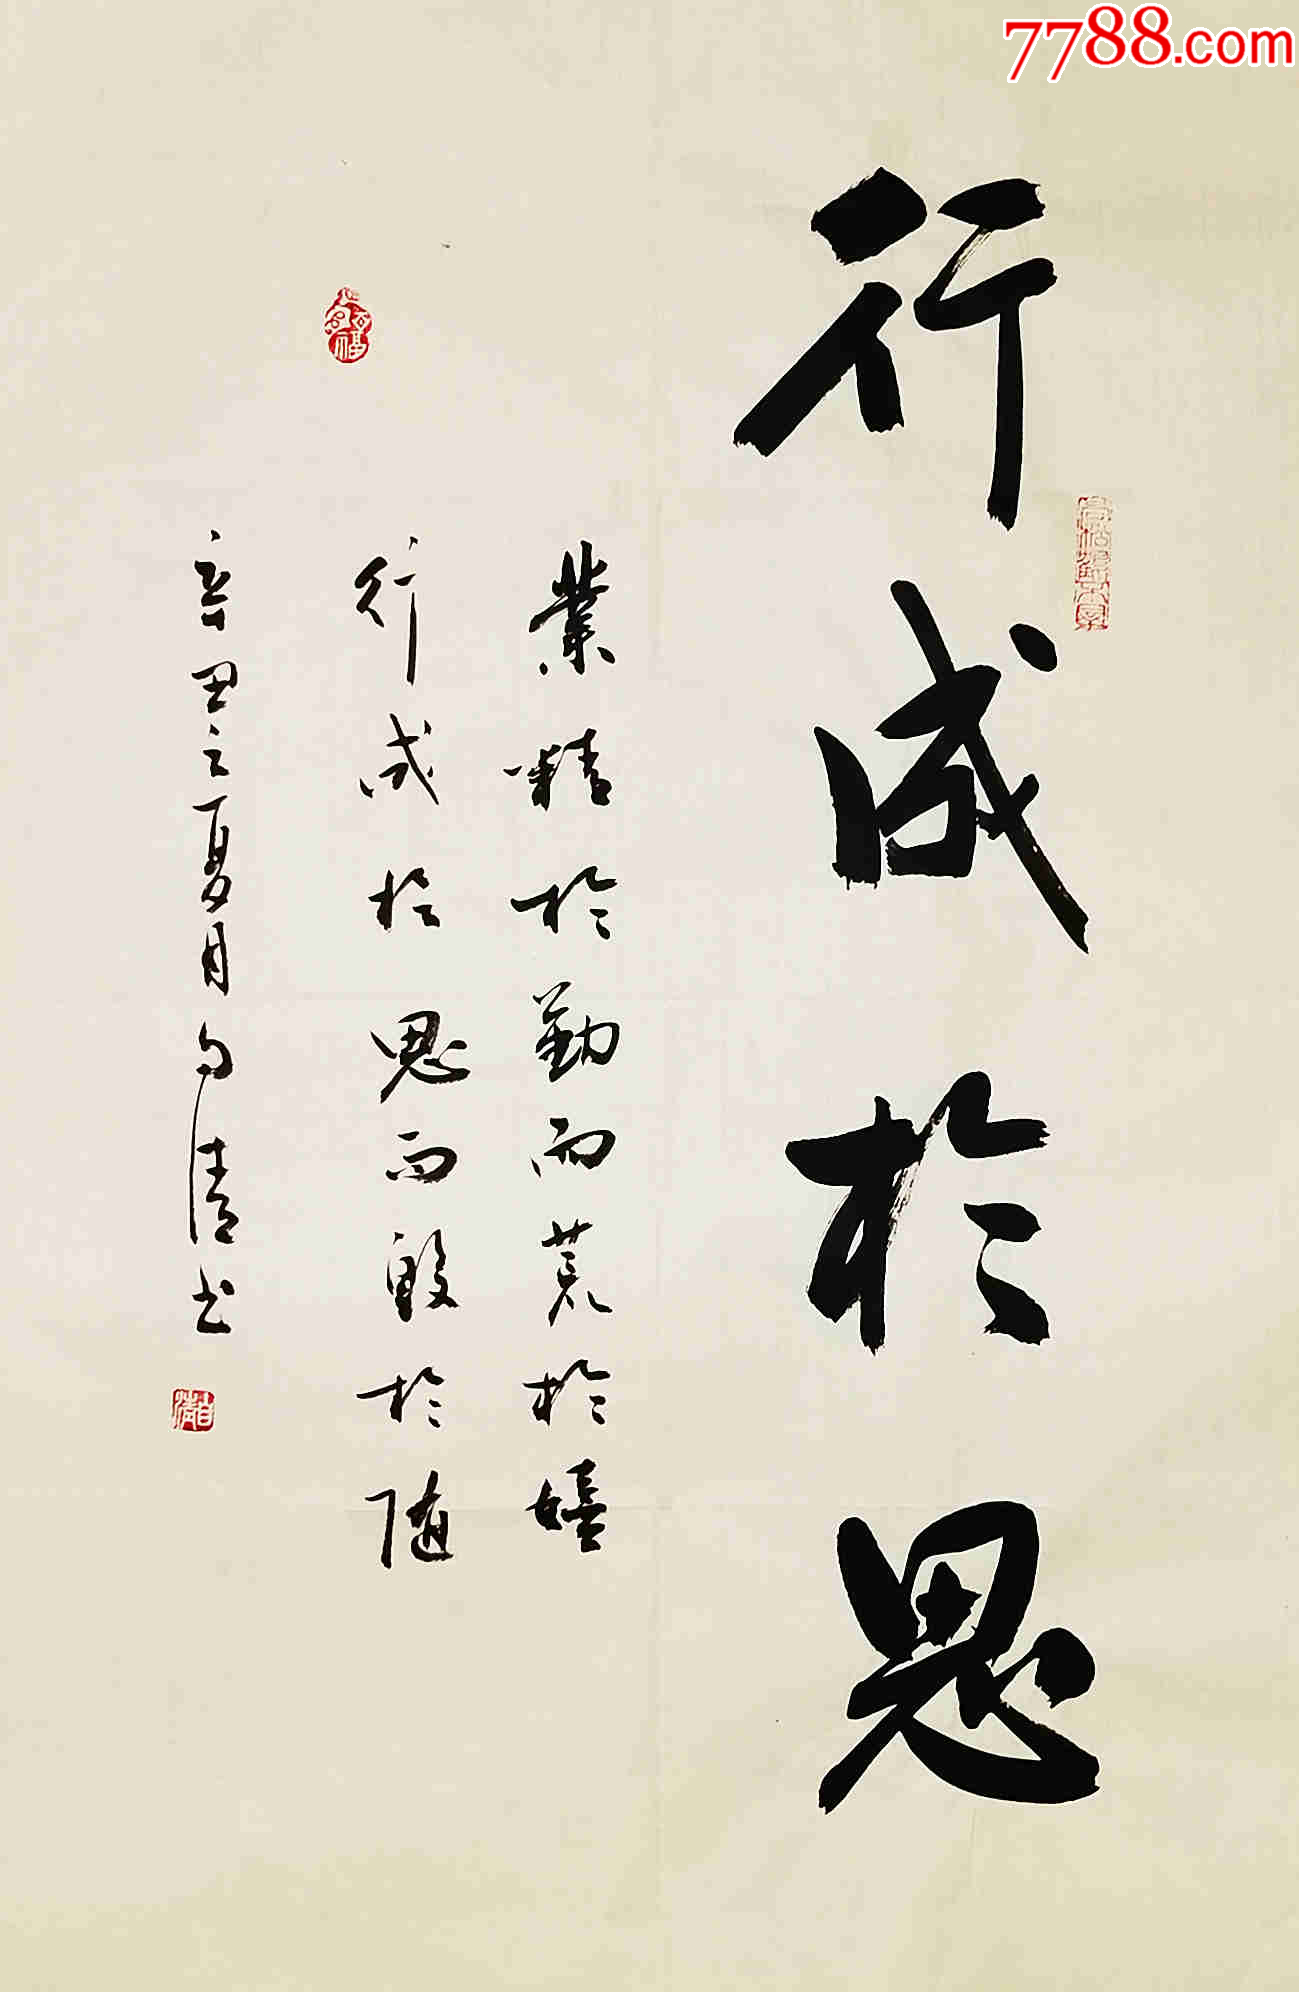 7788.com
行成於思
業精於勤而荒於嬉
行成於思而毀於随
辛丑之夏月自清书
自清